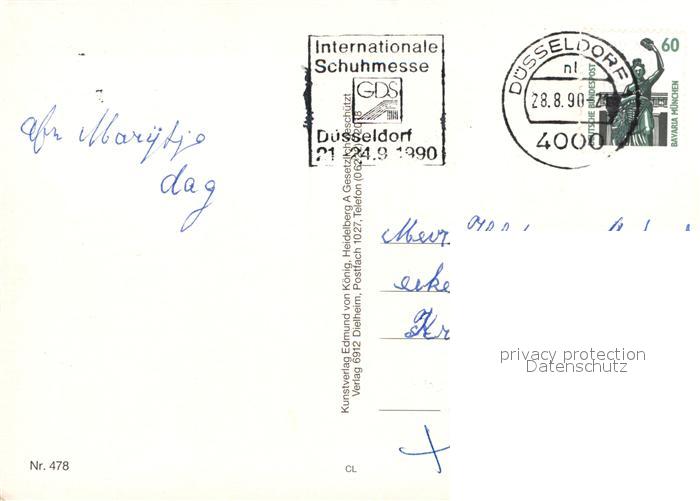 Internationale
Schuhmesse
GDS
Düsseldorf
21.-24.9.1990
DÜSSELDORF
28.8.90
4000
60
DEUTSCHE BUNDESPOST
BAVARIA MÜNCHEN
Marijtje
dag
Kunstverlag Edmund von König, Heidelberg A Gesetzlich geschützt
Verlag 6912 Dielheim, Postfach 1027, Telefon
Mevr
privacy protection
Datenschutz
Nr. 478
CL